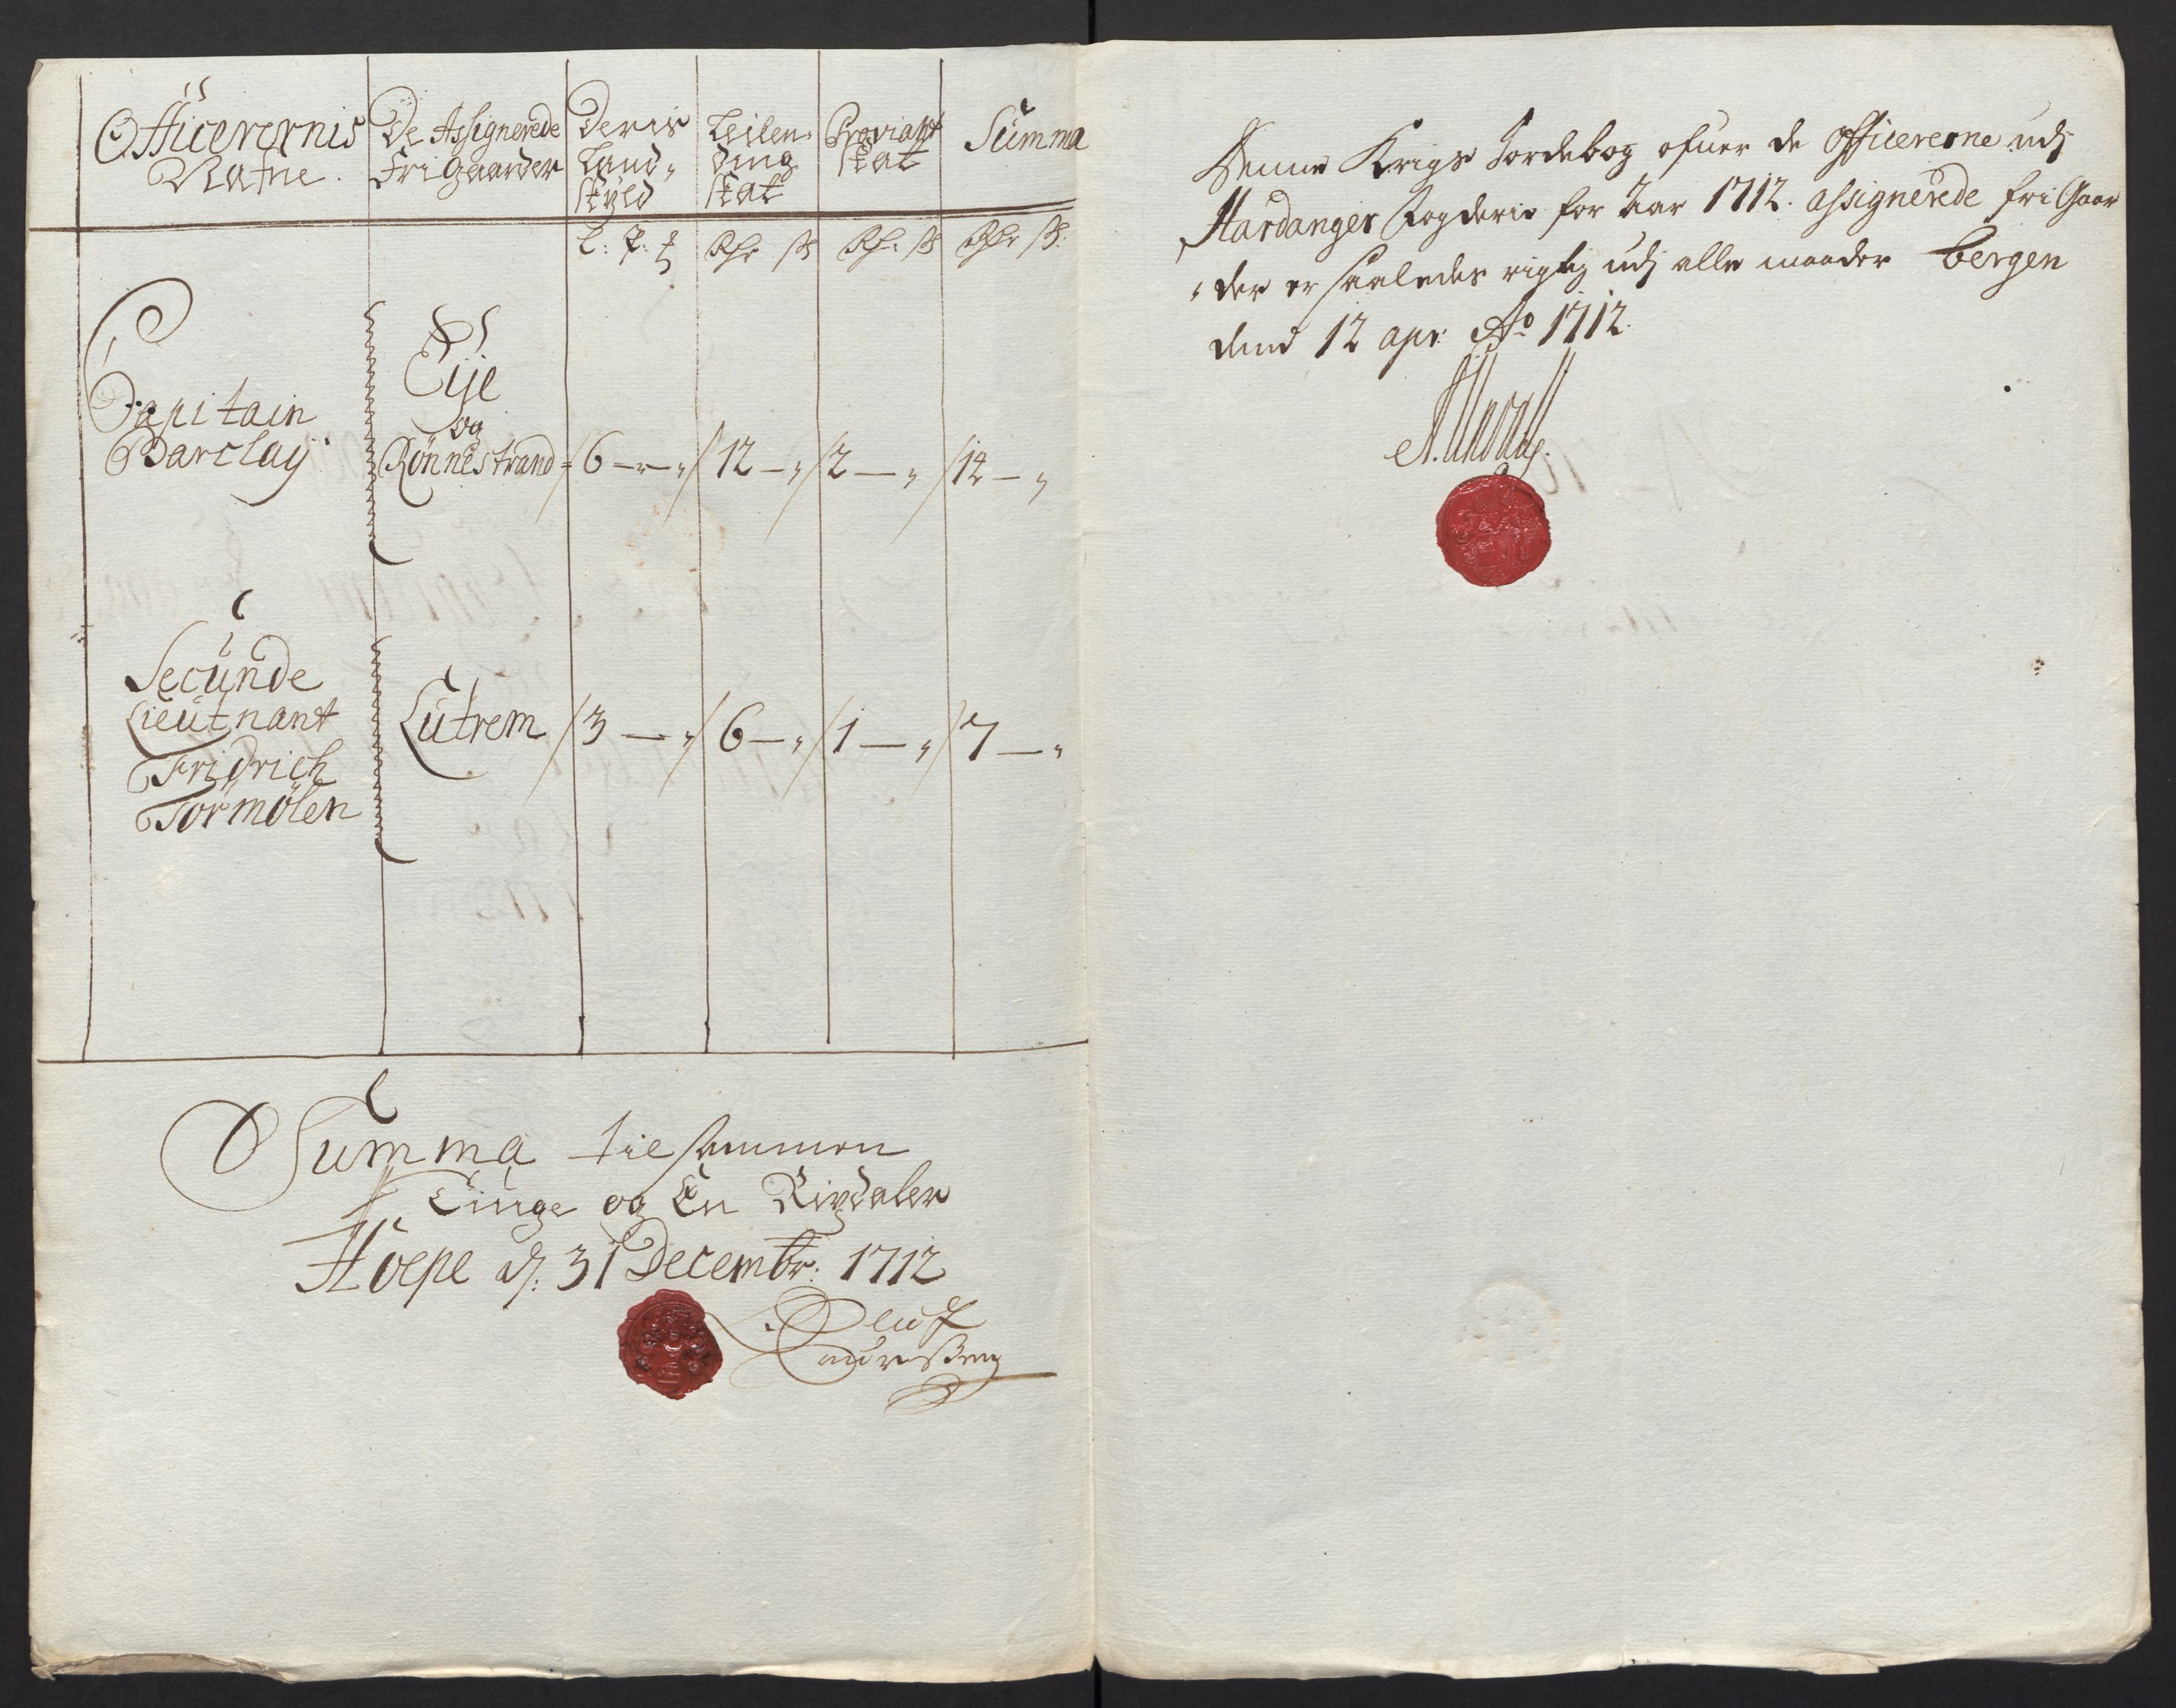 Officerernis Nafne. | De Assignerede Fri gaarder | Deris Land„ skyld | Leilen„ ding skat | Proviant skat | Summa
L: | Rdr ß | Rdr ß | Rdr ß
Capitain Barclaij | Eije og Rønnestrand | 6 — „ | 12 — „ | 2 — „ | 14 — „
Secunde Lieutnant Fridrich Tormølen | Lutrem | 3 — „ | 6 — „ | 1 — „ | 7 — „
Summa tilsammen
Tiuge og En Rixdaler
Hoepe d: 31 Decembr: 1712
Oluf
Laurssen
Denne Krigs Jordebog ofuer de Officererne udj
Hardanger fogderie for Aar 1712. assignerede fri Gaar
„der er saaledes rigtig udj alle maader Bergen
dend 12 apr: Ao 1712.